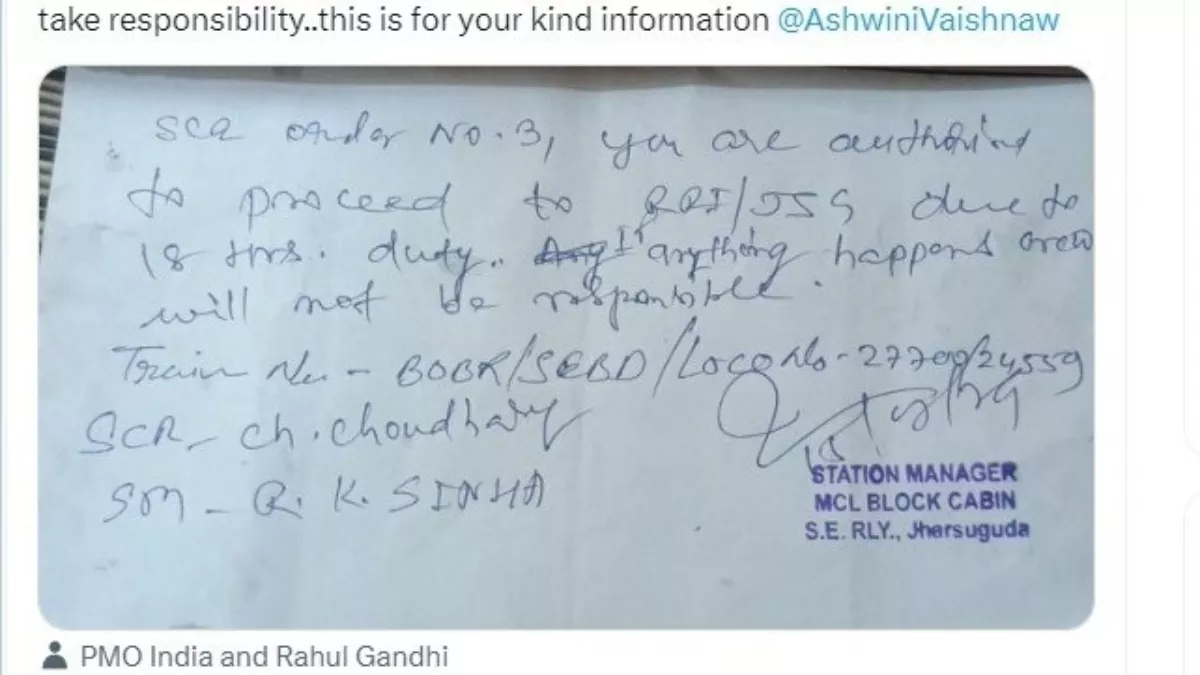 take responsibility..this is for your kind information @AshwiniVaishnaw
SCR order No. 3, you are authorised
to proceed to RRI/JSG due to
18 Hrs. duty.. Any If anything happens crew
will not be responsible.
Train No - BOBR/SEBD/Loco No - 27709/24559
SCR - Ch. Choudhary
SM - R. K. SINHA
STATION MANAGER
MCL BLOCK CABIN
S.E. RLY., Jharsuguda
PMO India and Rahul Gandhi